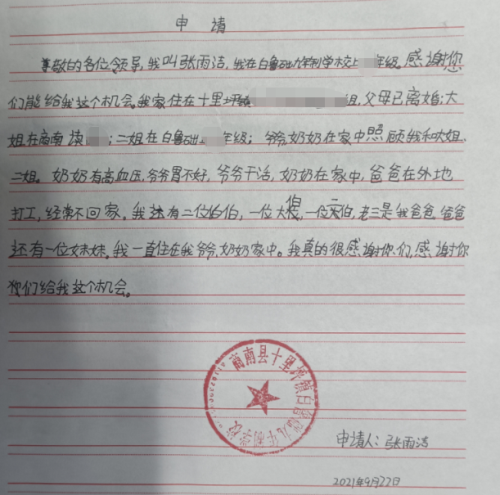 申 请
尊敬的各位领导,我叫张雨洁,我在白鲁础九年制学校上 年级。感谢你
们能给我这个机会。我家住在十里坪镇 组,父母已离婚;大
姐在商南 读 ;二姐在白鲁础上 年级;爷爷奶奶在家中照顾我和大姐、
二姐。奶奶有高血压,爷爷胃不好,爷爷干活,奶奶在家中,爸爸在外地
打工,经常不回家。我还有二位伯伯,一位大伯,一位二伯,老三是我爸爸,爸爸
还有一位妹妹。我一直住在我爷爷,奶奶家中。我真的很感谢你们,感谢你
们给我这个机会。
商南县十里坪镇白鲁础九年制学校
申请人:张雨洁
2021年9月22日